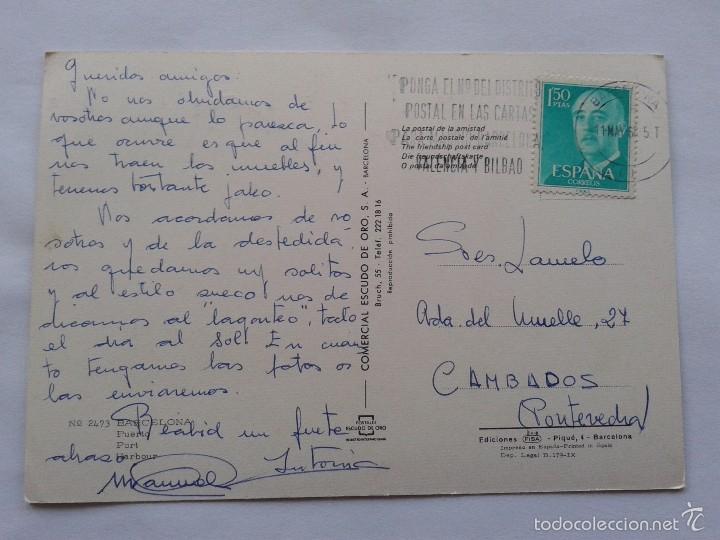 Queridos amigos:
No nos olvidamos de
vosotros aunque lo paresca, lo
que ocurre es que al fin
nos traen los muebles, y
tenemos bastante jaleo.
Nos acordamos de vo
sotros y de la despedida
nos quedamos muy solitos
y al estilo sueco nos de
dicamos al "lagarteo", todo
el dia al Sol! En cuan
to tengamos las fotos os
las enviaremos.
Recibid un fuerte
abrazo
Manuel Antonia
No 2473 BARCELONA
Puerto
Port
Harbour
COMERCIAL ESCUDO DE ORO, S. A. - BARCELONA
Bruch, 55 - Teléf. 222 18 16
Reproducción prohibida
POSTALES
ESCUDO DE ORO
PONGA EL Nº DEL DISTRITO
POSTAL EN LAS CARTAS
VALENCIA Y BILBAO
La postal de la amistad
La carte postale de l'amitié
The friendship post card
Die freundschaftskarte
O postal da amizade
1,50
PTAS
ESPAÑA
CORREOS
Sres. Lamelo
Avda. del Muelle, 27
CAMBADOS
Pontevedra
Ediciones FISA - Piqué, 4 - Barcelona
Impreso en España-Printed in Spain
Dep. Legal B. 179-IX
todocoleccion.net